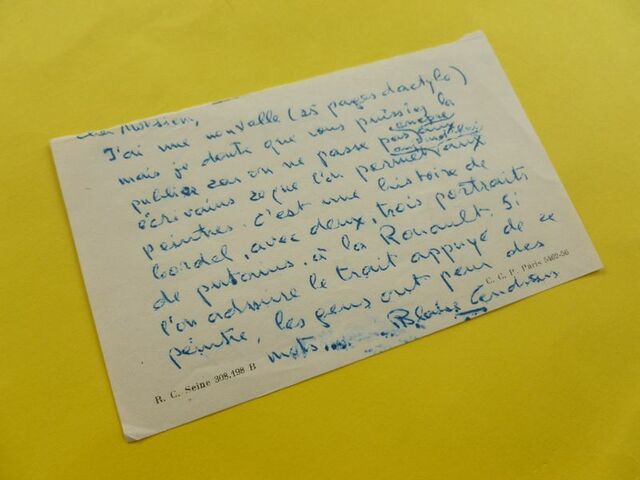 Cher Monsieur,
J'ai une nouvelle (25 pages dactylo)
mais je doute que vous puissiez la
publier car on ne passe pas aux
encore aujourd'hui
écrivains ce que l'on permet aux
peintres. C'est une histoire de
bordel, avec deux, trois portraits
de putains, à la Rouault. Si
l'on admire le trait appuyé de ce
peintre, les gens ont peur des
mots...
Blaise Cendrars
C. C. P. Paris 5402-56
R. C. Seine 308.198 B